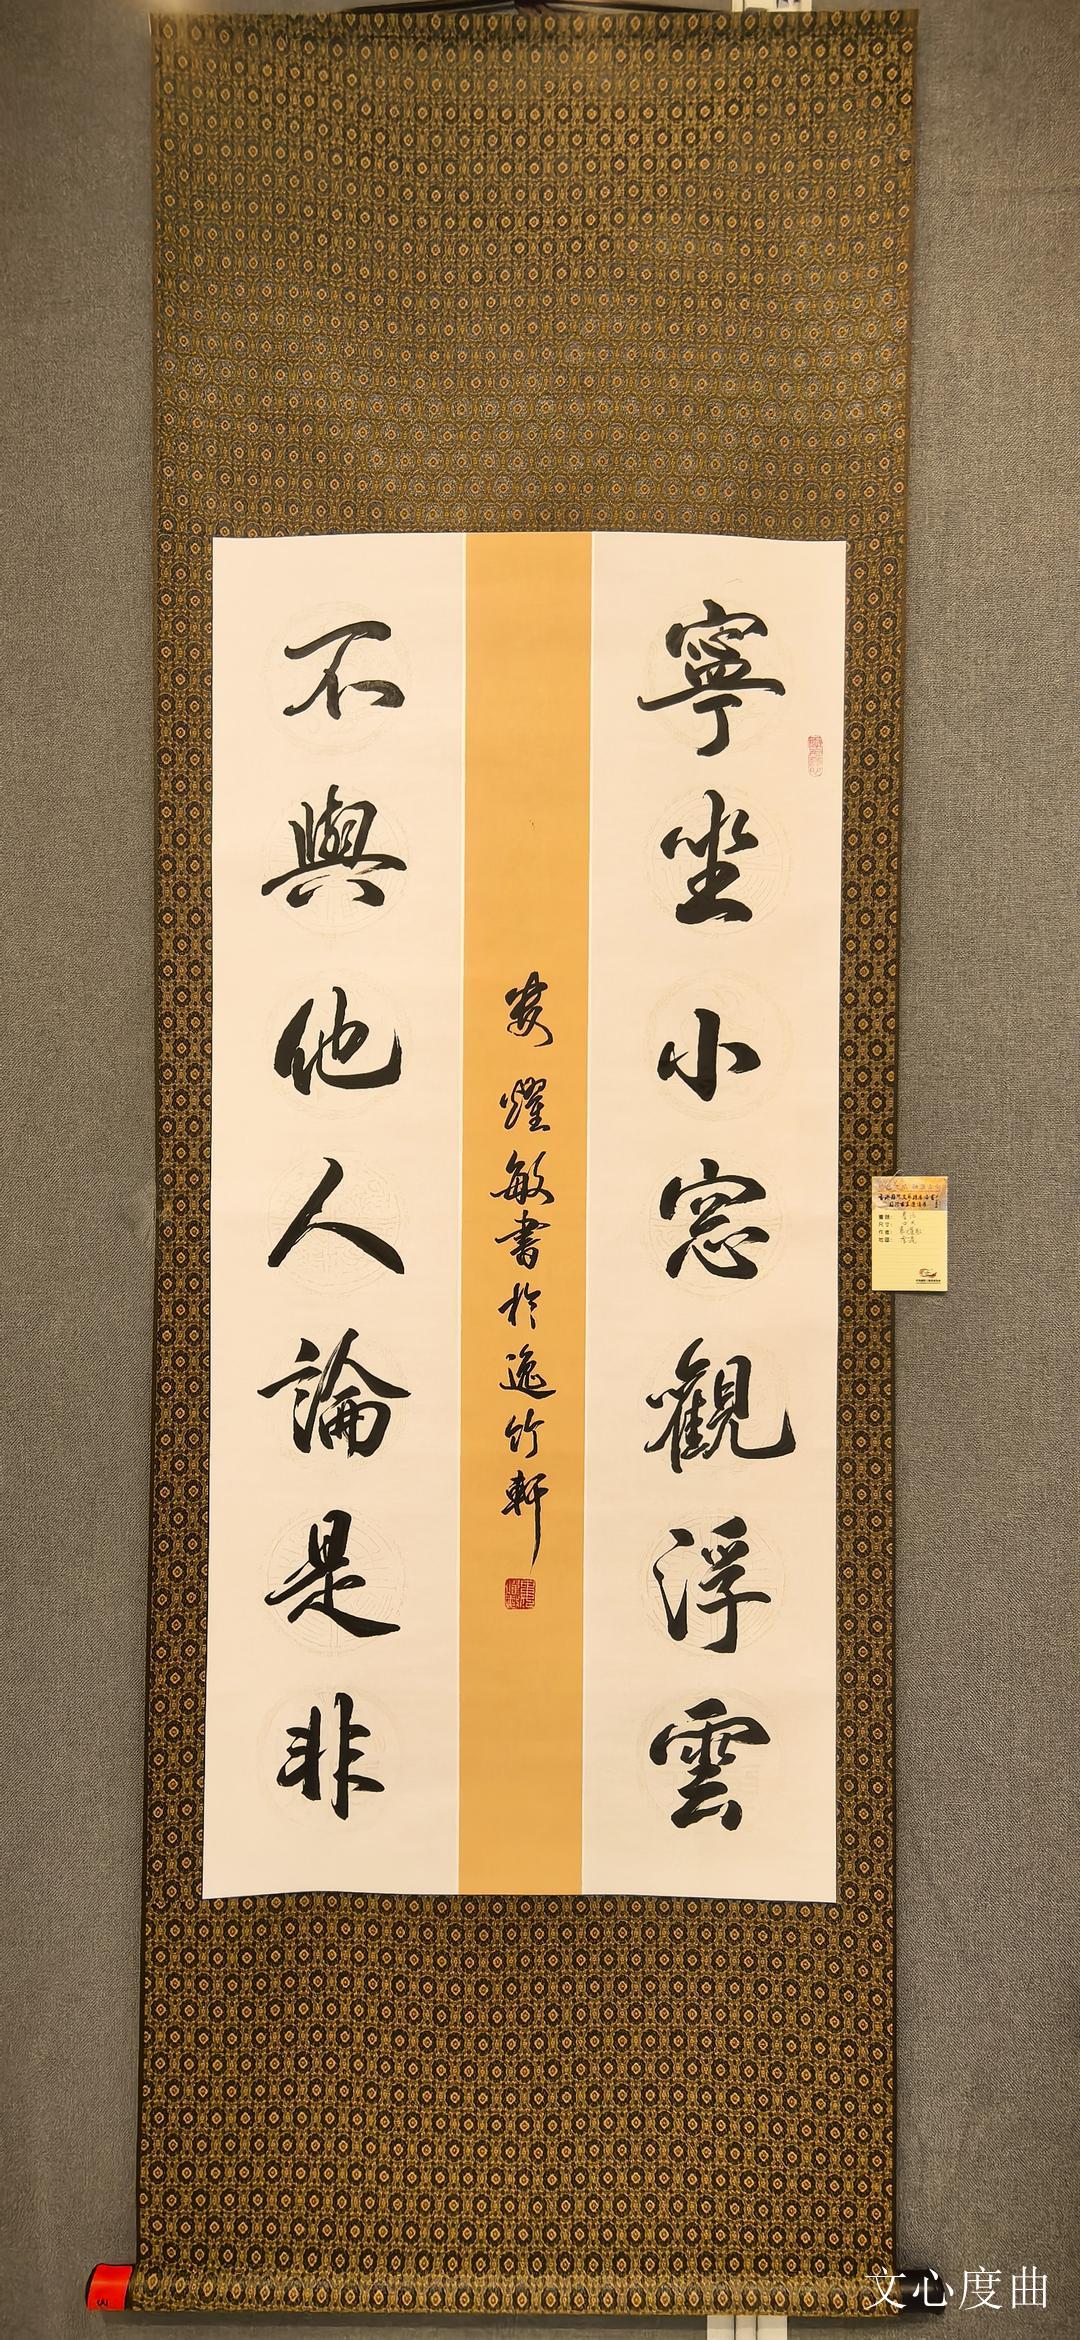 寧坐小窓觀浮雲
不與他人論是非
耀敏書於逸竹軒
文心度曲